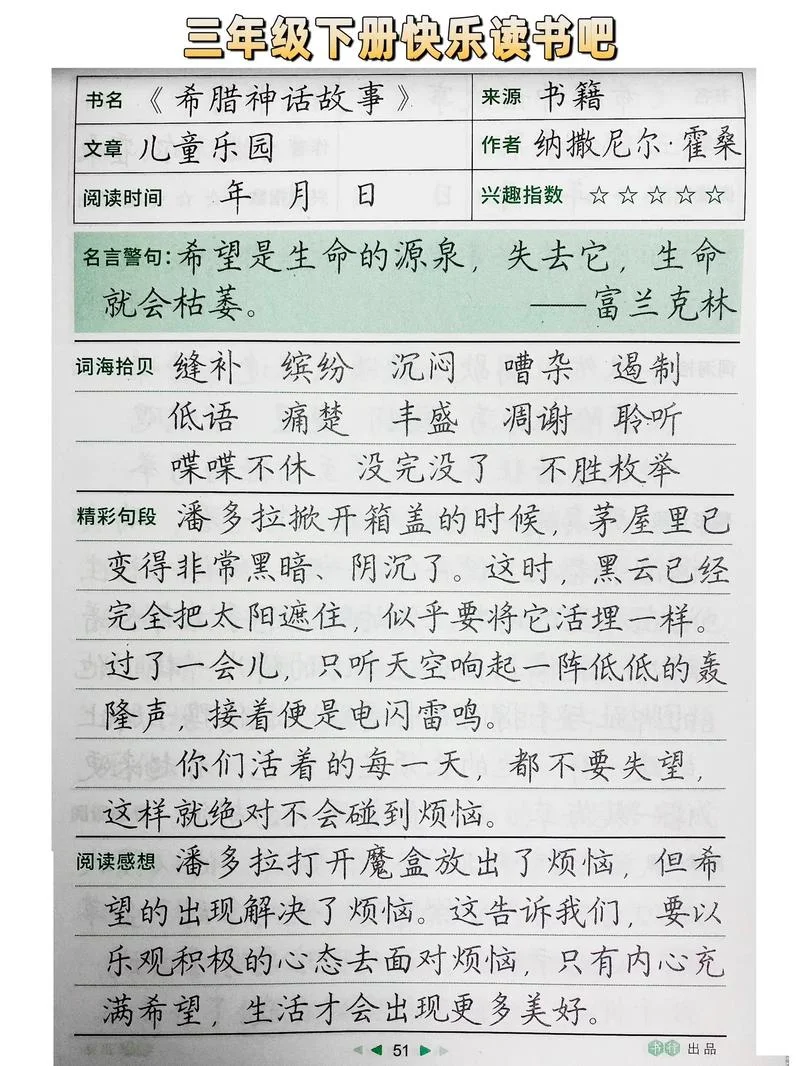 三年级下册快乐读书吧
书名 《希腊神话故事》 来源 书籍
文章 儿童乐园 作者 纳撒尼尔·霍桑
阅读时间 年 月 日 兴趣指数 ☆☆☆☆☆
名言警句:希望是生命的源泉，失去它，生命
就会枯萎。 ——富兰克林
词海拾贝 缝补 缤纷 沉闷 嘈杂 遏制
低语 痛楚 丰盛 凋谢 聆听
喋喋不休 没完没了 不胜枚举
精彩句段 潘多拉掀开箱盖的时候，茅屋里已
变得非常黑暗、阴沉了。这时，黑云已经
完全把太阳遮住，似乎要将它活埋一样。
过了一会儿，只听天空响起一阵低低的轰
隆声，接着便是电闪雷鸣。
你们活着的每一天，都不要失望，
这样就绝对不会碰到烦恼。
阅读感想 潘多拉打开魔盒放出了烦恼，但希
望的出现解决了烦恼。这告诉我们，要以
乐观积极的心态去面对烦恼，只有内心充
满希望，生活才会出现更多美好。
51
出品